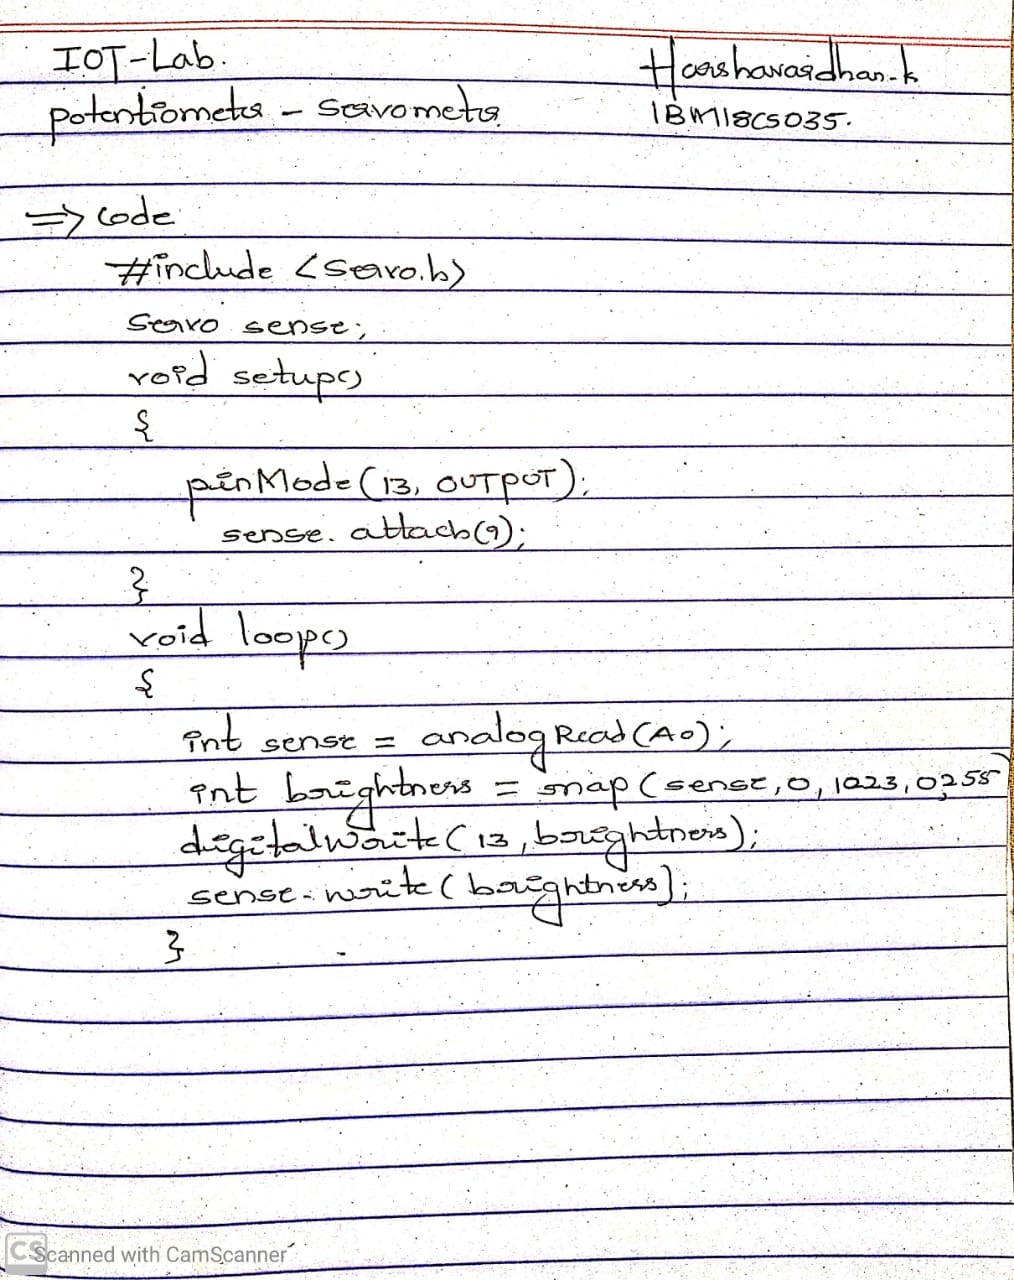 IOT-Lab.
Harshavardhan-k
potentiometer - servometer
1BM18CS035.
=> code
#include <servo.h>
servo sense;
void setup()
{
pinMode(13, OUTPUT);
sense.attach(9);
}
void loop()
{
int sense = analogRead(A0);
int brightness = map(sense,0,1023,0,255)
digitalWrite(13,brightness);
sense.write(brightness);
}
CS Scanned with CamScanner